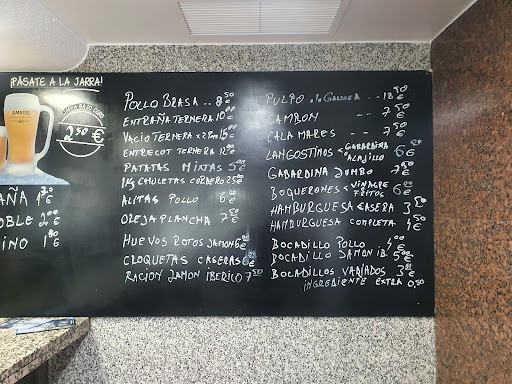 ¡PÁSATE A LA JARRA!
AMSTEL
2,50 €
AÑA 1
OBLE 2
INO 1
POLLO BRASA .. 8,50 €
ENTRAÑA TERNERA 10 €
VACIO TERNERA 15 €
ENTRECOT TERNERA 12 €
PATATAS MIXTAS 5 €
1KG CHULETAS CORDERO 25 €
ALITAS POLLO 6 €
OREJA PLANCHA 7,50 €
HUEVOS ROTOS JAMON 6 €
CROQUETAS CASERAS 6 €
RACION JAMON IBERICO 7,50
PULPO GALLEGA .. 18,50 €
GAMBON -- 7,50 €
CALAMARES -- 7,50 €
LANGOSTINOS < GABARDINA AL AJILLO 6 €
GABARDINA JUMBO 7 €
BOQUERONES < VINAGRE FRITOS 6 €
HAMBURGUESA CASERA 3,50 €
HAMBURGUESA COMPLETA 4,50 €
BOCADILLO POLLO . 4,00 €
BOCADILLO JAMON IB. 5,00 €
BOCADILLOS VARIADOS 3 €
INGREDIENTE EXTRA 0,50